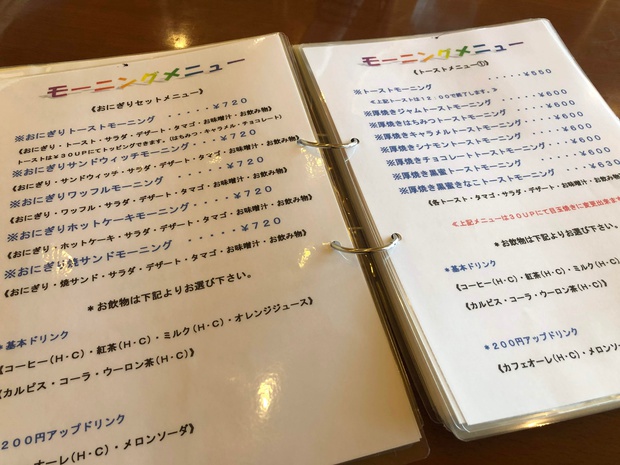 モーニングメニュー
《おにぎりセットメニュー》
※おにぎりトーストモーニング ・・・・・¥720
(おにぎり・トースト・サラダ・デザート・タマゴ・お味噌汁・お飲み物)
トーストは¥30UPにてトッピングできます。(はちみつ・キャラメル・チョコレート)
※おにぎりサンドウィッチモーニング・・・・¥720
(おにぎり・サンドウィッチ・サラダ・デザート・タマゴ・お味噌汁・お飲み物)
※おにぎりワッフルモーニング ・・・・・¥720
(おにぎり・ワッフル・サラダ・デザート・タマゴ・お味噌汁・お飲み物)
※おにぎりホットケーキモーニング ・・・・¥720
(おにぎり・ホットケーキ・サラダ・デザート・タマゴ・お味噌汁・お飲み物)
※おにぎり焼サンドモーニング ・・・・・¥720
(おにぎり・焼サンド・サラダ・デザート・タマゴ・お味噌汁・お飲み物)
*お飲物は下記よりお選び下さい。
*基本ドリンク
《コーヒー(H・C)・紅茶(H・C)・ミルク(H・C)・オレンジジュース》
《カルピス・コーラ・ウーロン茶(H・C)》
200円アップドリンク
オーレ(H・C)・メロンソーダ》
モーニングメニュー
《トーストメニュー①》
※トーストモーニング ・・・・・¥550
《上記トーストは12:00で終了します。》
※厚焼きジャムトーストモーニング
※厚焼きはちみつトーストモーニング
※厚焼きキャラメルトーストモーニング
※厚焼きシナモントーストモーニング
※厚焼きチョコレートトーストモーニング
※厚焼き黒蜜トーストモーニング
※厚焼き黒蜜きなこトーストモーニング
(各トースト・タマゴ・サラダ・デザート・お味噌汁・お飲
《上記メニューは30UPにて目玉焼きに変更出来ます
*お飲物は下記よりお選び下さい。
*基本ドリンク
《コーヒー(H・C)・紅茶(H・C)・ミルク(H・C)・
《カルピス・コーラ・ウーロン茶(H・C)》
*200円アップドリンク
《カフェオーレ(H・C)・メロンソー